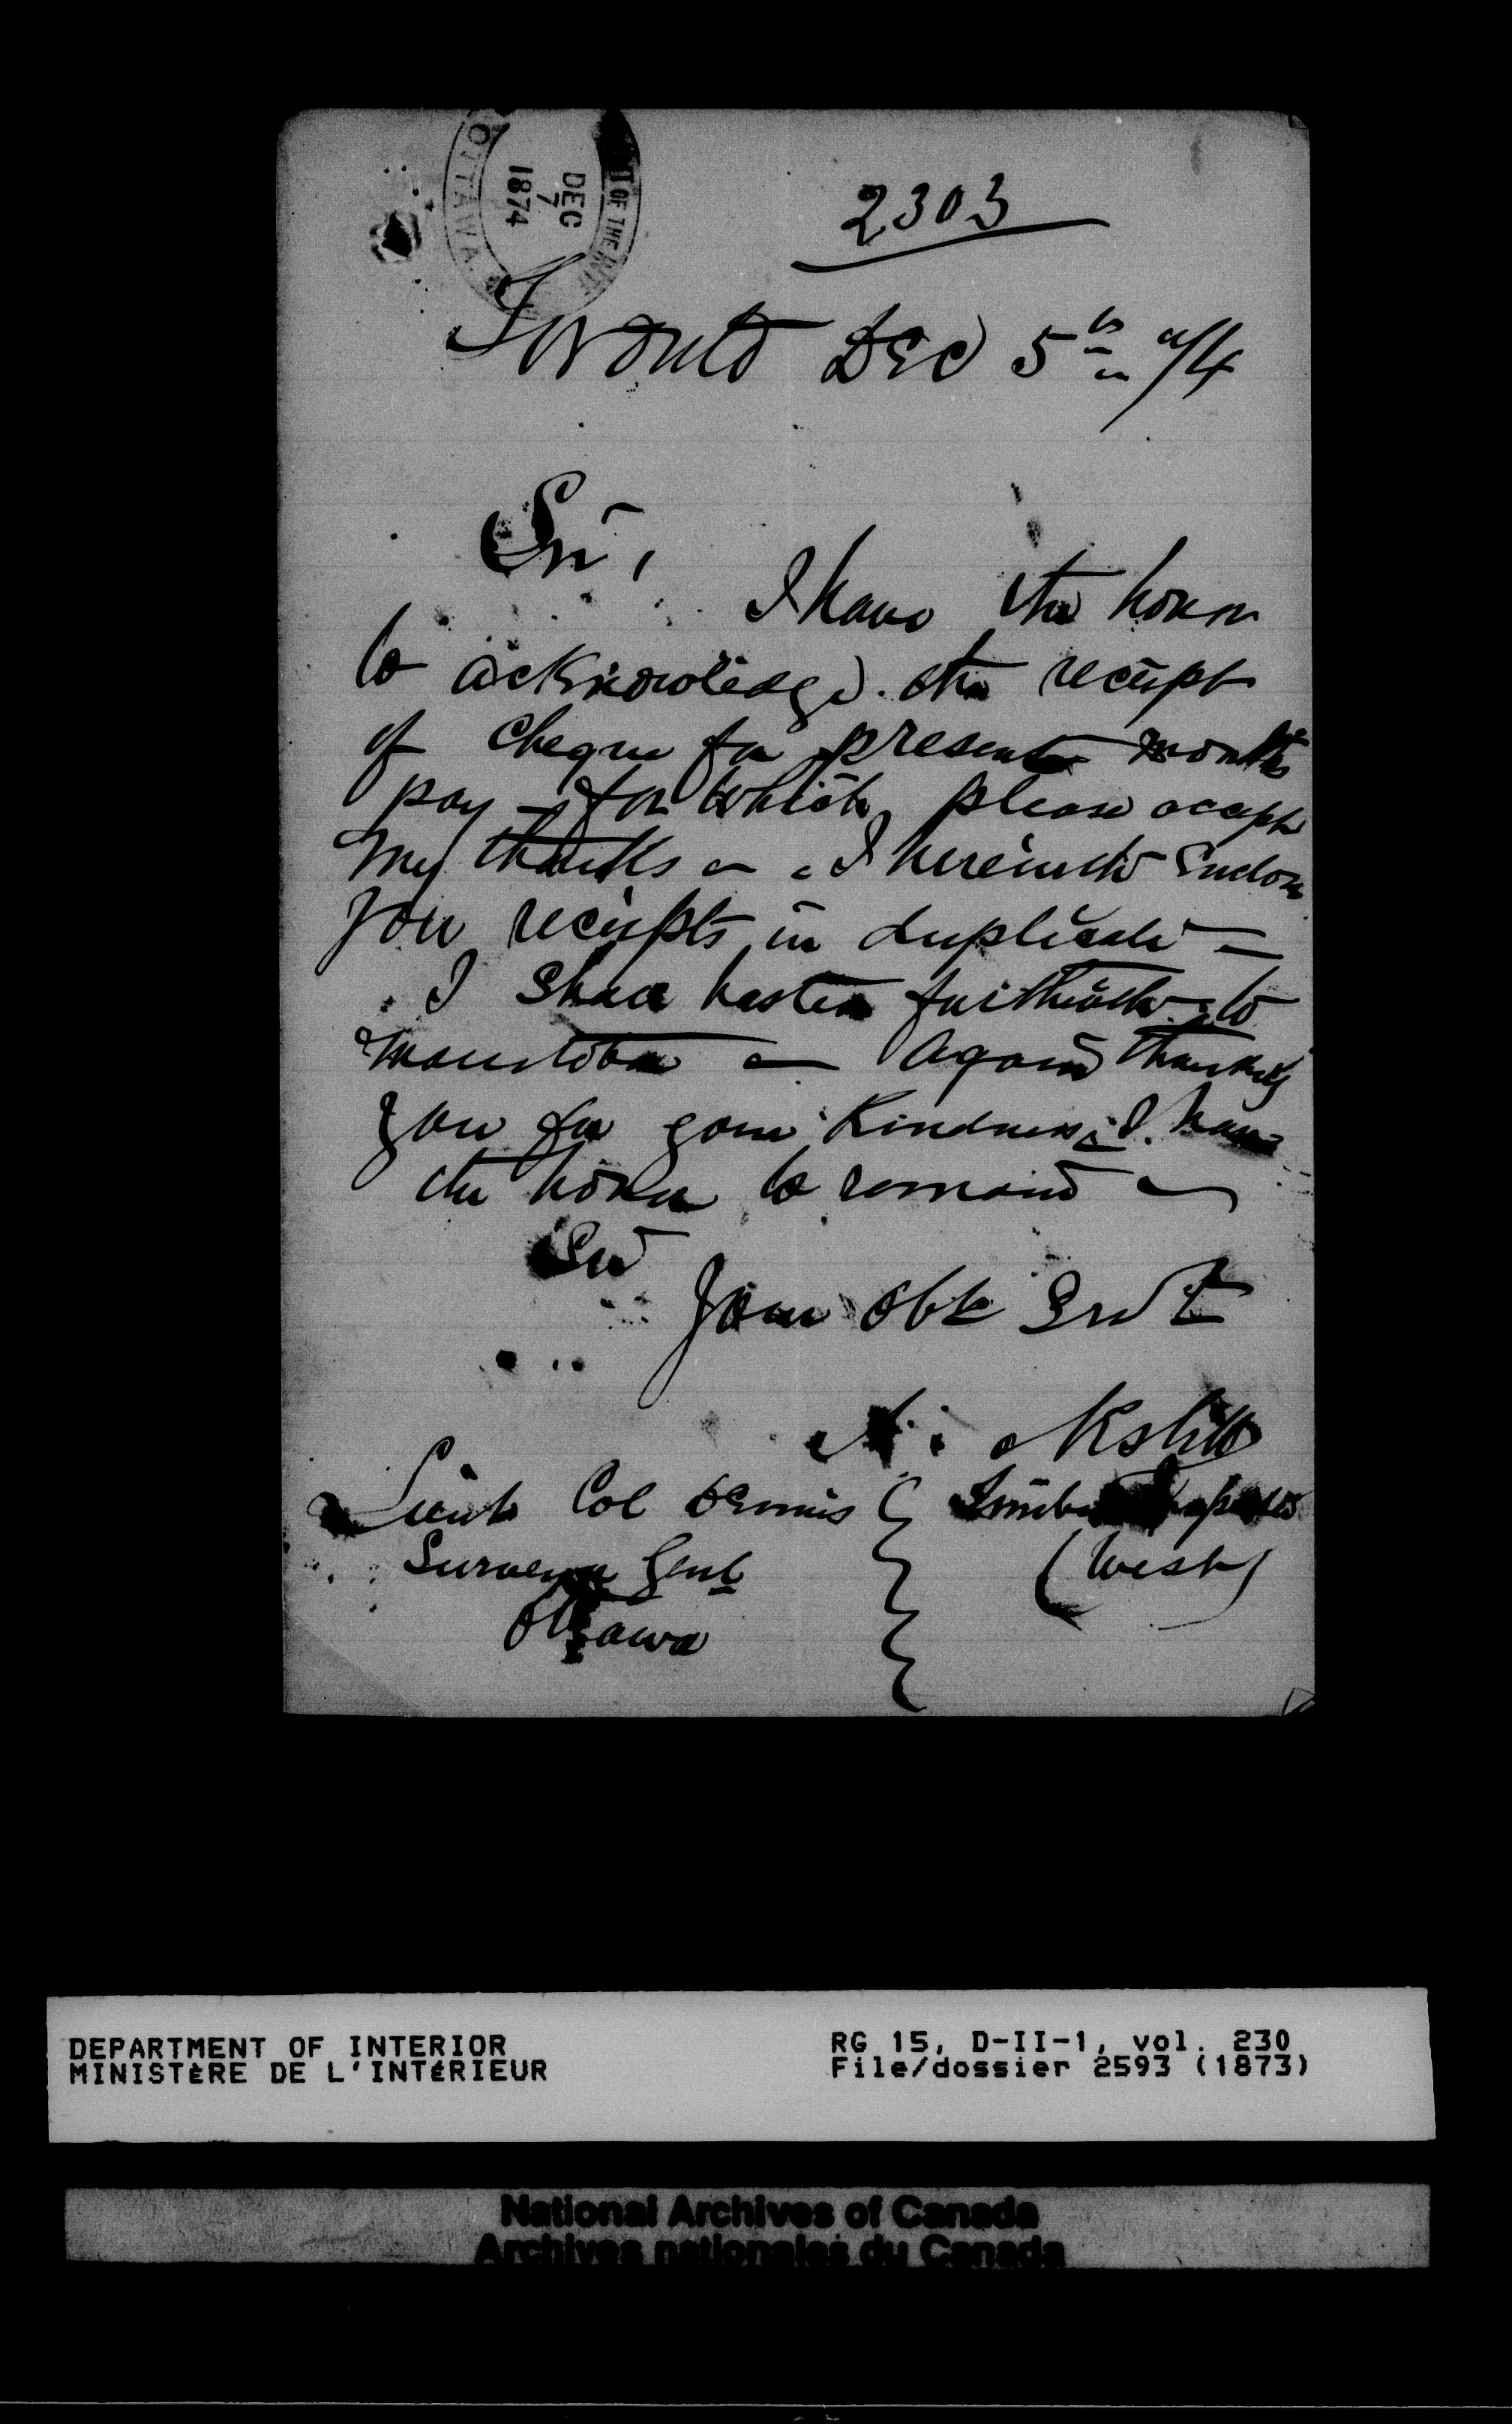 OTTAWA
DEC
7
1874
T OF THE INT
2303
Toronto Dec 5th 74
Sir,
I have the honor
to acknowledge the receipt
of cheque for present months
pay - for which please accept
my thanks - I herewith Enclose
you receipts in duplicate -
I shall hasten forthwith to
Manitoba - Again thanking
you for your Kindness I have
the honor to remain -
Sir
Your Obt Srvt
Lieut Col Dennis
Timber Inspector
Surveyor Genl
(West)
Ottawa
DEPARTMENT OF INTERIOR
MINISTÈRE DE L'INTÉRIEUR
RG 15, D-II-1, vol. 230
File/dossier 2593 (1873)
National Archives of Canada
Archives nationales du Canada